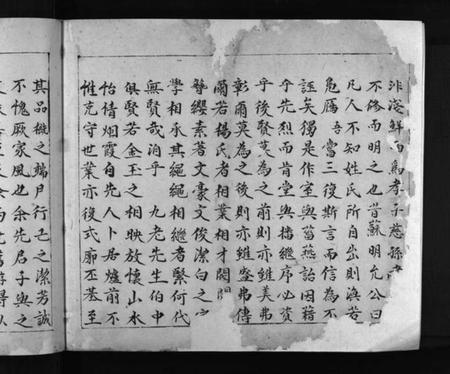 泮落鮮由為孝子慈孫
不修而明之也昔蘇明允公曰
凡人不知姓氏所自出則渙若
危厲吾嘗三復斯言而信為不
誣矣獨是作室與菑燕詒固藉
乎先烈而肯堂與播繼序必資
乎後賢莫為之前則亦雖美弗
彰爾莫為之後則亦雖盛弗傳
爾若楊氏者相業相才閥閱
簪纓素著文豪文俊潔白之
學相承其繩繩相繼者緊何代
無賢哉洎乎九老先生伯中
俱賢若金玉之相映放懷山水
怡情烟霞自先人卜居爐前不
惟克守世業亦復式廓丕基至
其品概之端戶行己之潔芳誠
不愧厥家風也余先君子與之